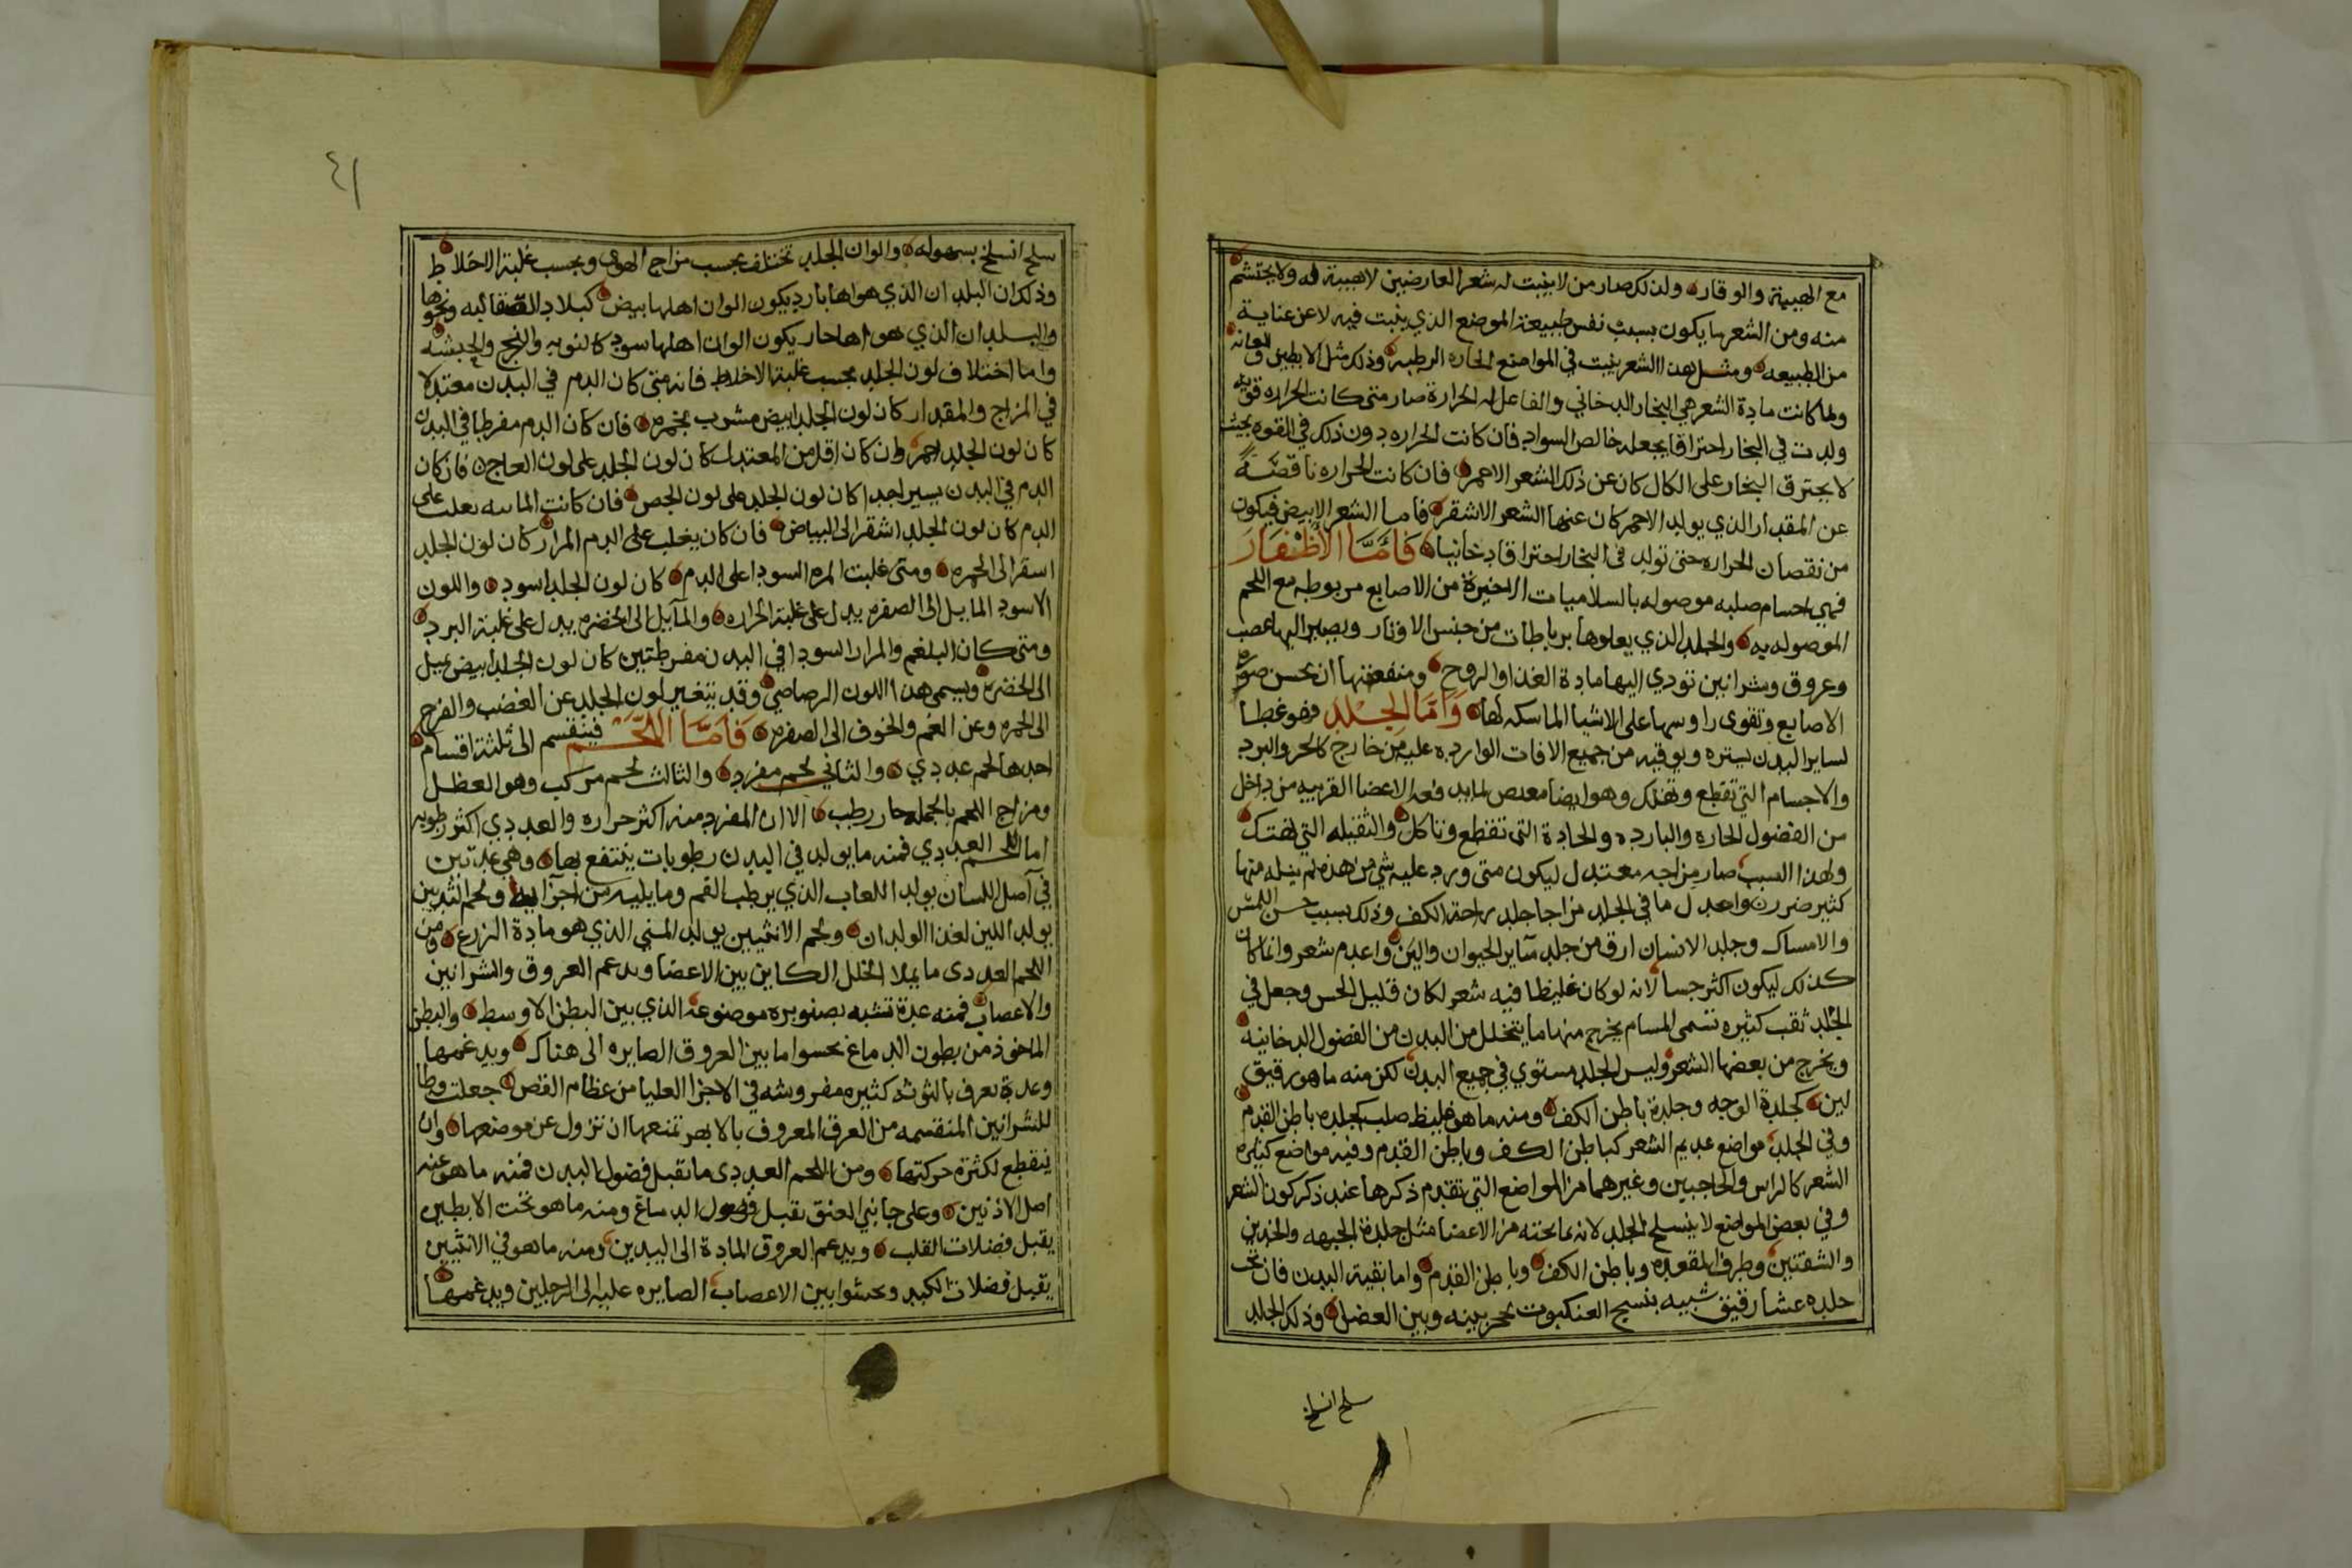 مع الهيبة والوقار ولذلك صار من لا ينبت له شعر العارضين لا هيبة له ولا يحتشم
منه ومن الشعر ما يكون بسبب نفس طبيعة الموضع الذي ينبت فيه لا عن عناية
من الطبيعه ومثل هذا الشعر ينبت في المواضع الحاره الرطبه وذلك مثل الابطين والعانه
ولما كانت مادة الشعر هي البخار الدخاني والفاعل له الحرارة صار متى كانت الحراره قويه
ولدت في البخار احتراقا يجعله خالص السواد فان كانت الحراره دون ذلك في القوه بحيث
لا يحترق البخار على الكمال كان عن ذلك الشعر الاحمر فان كانت الحراره ناقصة
عن المقدار الذي يولد الاحمر كان عنها الشعر الاشقر فاما الشعر الابيض فيكون
من نقصان الحراره حتى تولد في البخار احتراقا دخانيا فَامَّا الأظْفَار
فهي اجسام صلبه موصوله بالسلاميات الاخيرة من الاصابع مربوطه مع اللحم
الموصوله به والجلد الذي يعلوها برباطات من جنس الاوتار ويصير اليها عصب
وعروق وشرانين تودي اليها مادة الغذا والروح ومنفعتها ان تحسن صوره
الاصابع وتقوى راوسها على الاشيا الماسكه لها وَامَّا الجِلْد فهو غطا
لساير البدن يستره ويوقيه من جميع الافات الوارده عليه من خارج كالحر والبرد
والاجسام التي تقطع وتهتك وهو ايضا الاعضا القريبه من داخل
من الفضول الحاره والبارده والحادة التى تقطع وتاكل والثقيله التي تهتك
ولهذا السبب صار مزاجه معتدل ليكون متى ورد عليه شي من هذه لم ينله منها
كثير ضرر واعدل ما في الجلد مزاجا جلد راحة الكف وذلك بسبب حسن اللمس
والامساك وجلد الانسان ارق من جلد ساير الحيوان والين واعدم شعر وانما كان
كذلك ليكون اكثر حسا لانه لو كان غليظا فيه شعر لكان قليل الحس وجعل في
الجلد ثقب كثيره تسمى المسام يخرج منها ما يتحلل من البدن من الفضول الدخانيه
ويخرج من بعضها الشعر وليس الجلد مستوي في جميع البدن لكن منه ما هو رقيق
لين كجلدة الوجه وجلدة باطن الكف ومنه ما هو غليظ صلب كجلده باطن القدم
وفي الجلد مواضع عديم الشعر كباطن الكف وباطن القدم وفيه مواضع كثيره
الشعر كالراس والحاجبين وغيرهما من المواضع التي تقدم ذكرها عند ذكر كون الشعر
وفي بعض المواضع لا ينسلح الجلد لانه ما تحته من الاعضا مثل جلدة الجبهه والخدين
والشفتين وطرف المقعده وباطن الكف وباطن القدم واما بقية البدن فان تحت
جلده غشا رقيق شبيه بنسج العنكبوت يحجز بينه وبين العضل وذلك الجلد
سلح انسلخ
٤١
سلح انسلخ بسهوله والوان الجلد تختلف بحسب مزاج الهوى وبحسب غلبة الاخلاط
وذلك ان البلدان الذي هواها بارد يكون الوان اهلها بيض كبلاد الصقالبه ونحوها
والبلدان الذي هواها حار يكون الوان اهلها سود كالنوبه والزنج والحبشه
واما اختلاف لون الجلد بحسب غلبة الاخلاط فانه متى كان الدم في البدن معتدلا
في المزاج والمقدار كان لون الجلد ابيض مشرب بحمره فان كان الدم مفرطا في البدن
كان لون الجلد احمر وان كان اقل من المعتدل كان لون الجلد على لون العاج فان كان
الدم في البدن يسير اجدا كان لون الجلد على لون الجص فان كانت الماييه تغلب على
الدم كان لون الجلد اشقر الى البياض فان كان يغلب على الدم المرار كان لون الجلد
اسقر الى الحمره ومتى غلبت المره السودا على الدم كان لون الجلد اسود واللون
الاسود المايل الى الصفره يدل على غلبة الحراره والمآيل الى الخضره يدل على غلبة البرد
ومتى كان البلغم والمرار السودا في البدن مفرطتين كان لون الجلد ابيض يميل
الى الخضره ويسمى هذا اللون الرصاصي وقد يتغير لون الجلد عن الغضب والفرح
الى الحمره وعن الغم والخوف الى الصفره فَأمَّا اللحْم فينقسم الى ثلثة اقسام
احدها لحم غددي والثاني لحم مفرد والثالث لحم مركب وهو العظل
ومزاج اللحم بالجمله حار رطب الا ان المفرد منه اكثر حراره والغددي اكثر رطوبه
اما اللحم الغددي فمنه ما يولد في البدن رطوبات ينتفع بها وهي غدتين
في آصل اللسان يولد اللعاب الذي يرطب الفم وما يليه من اجزايه ولحم الثديين
يولد اللبن لغذا الولدان ولحم الانثيين يولد المني الذي هو مادة الزرع ومن
اللحم الغددى ما يملا الخلل الكاين بين الاعضا ويدعم العروق والشرانين
والاعصاب فمنه غدة تشبه بصنوبره موضوعه الذي بين البطن الاوسط والبطن
الماخوذ من بطون الدماغ تحسوا ما بين العروق الصايره الى هناك ويدغمها
وغدة تعرف بالتوثه كثيره مفروشه في الاجزا العليا من عظام القص جعلت وطا
للشرانين المنقسمه من العرق المعروف بالابهر تمنعها ان تزول عن موضعها وان
ينقطع لكثرة حركتها ومن اللحم الغددى ما تقبل فضول البدن فمنه ما هو عند
اصل الاذنين وعلى جانبي العنق تقبل فضول الدماغ ومنه ما هو تحت الابطين
يقبل فضلات القلب ويدعم العروق المادة الى اليدين ومنه ما هو في الانثيين
يقبل فضلات الكبد وتحشوا بين الاعصاب الصايره عليه الى الرجلين ويدغمها